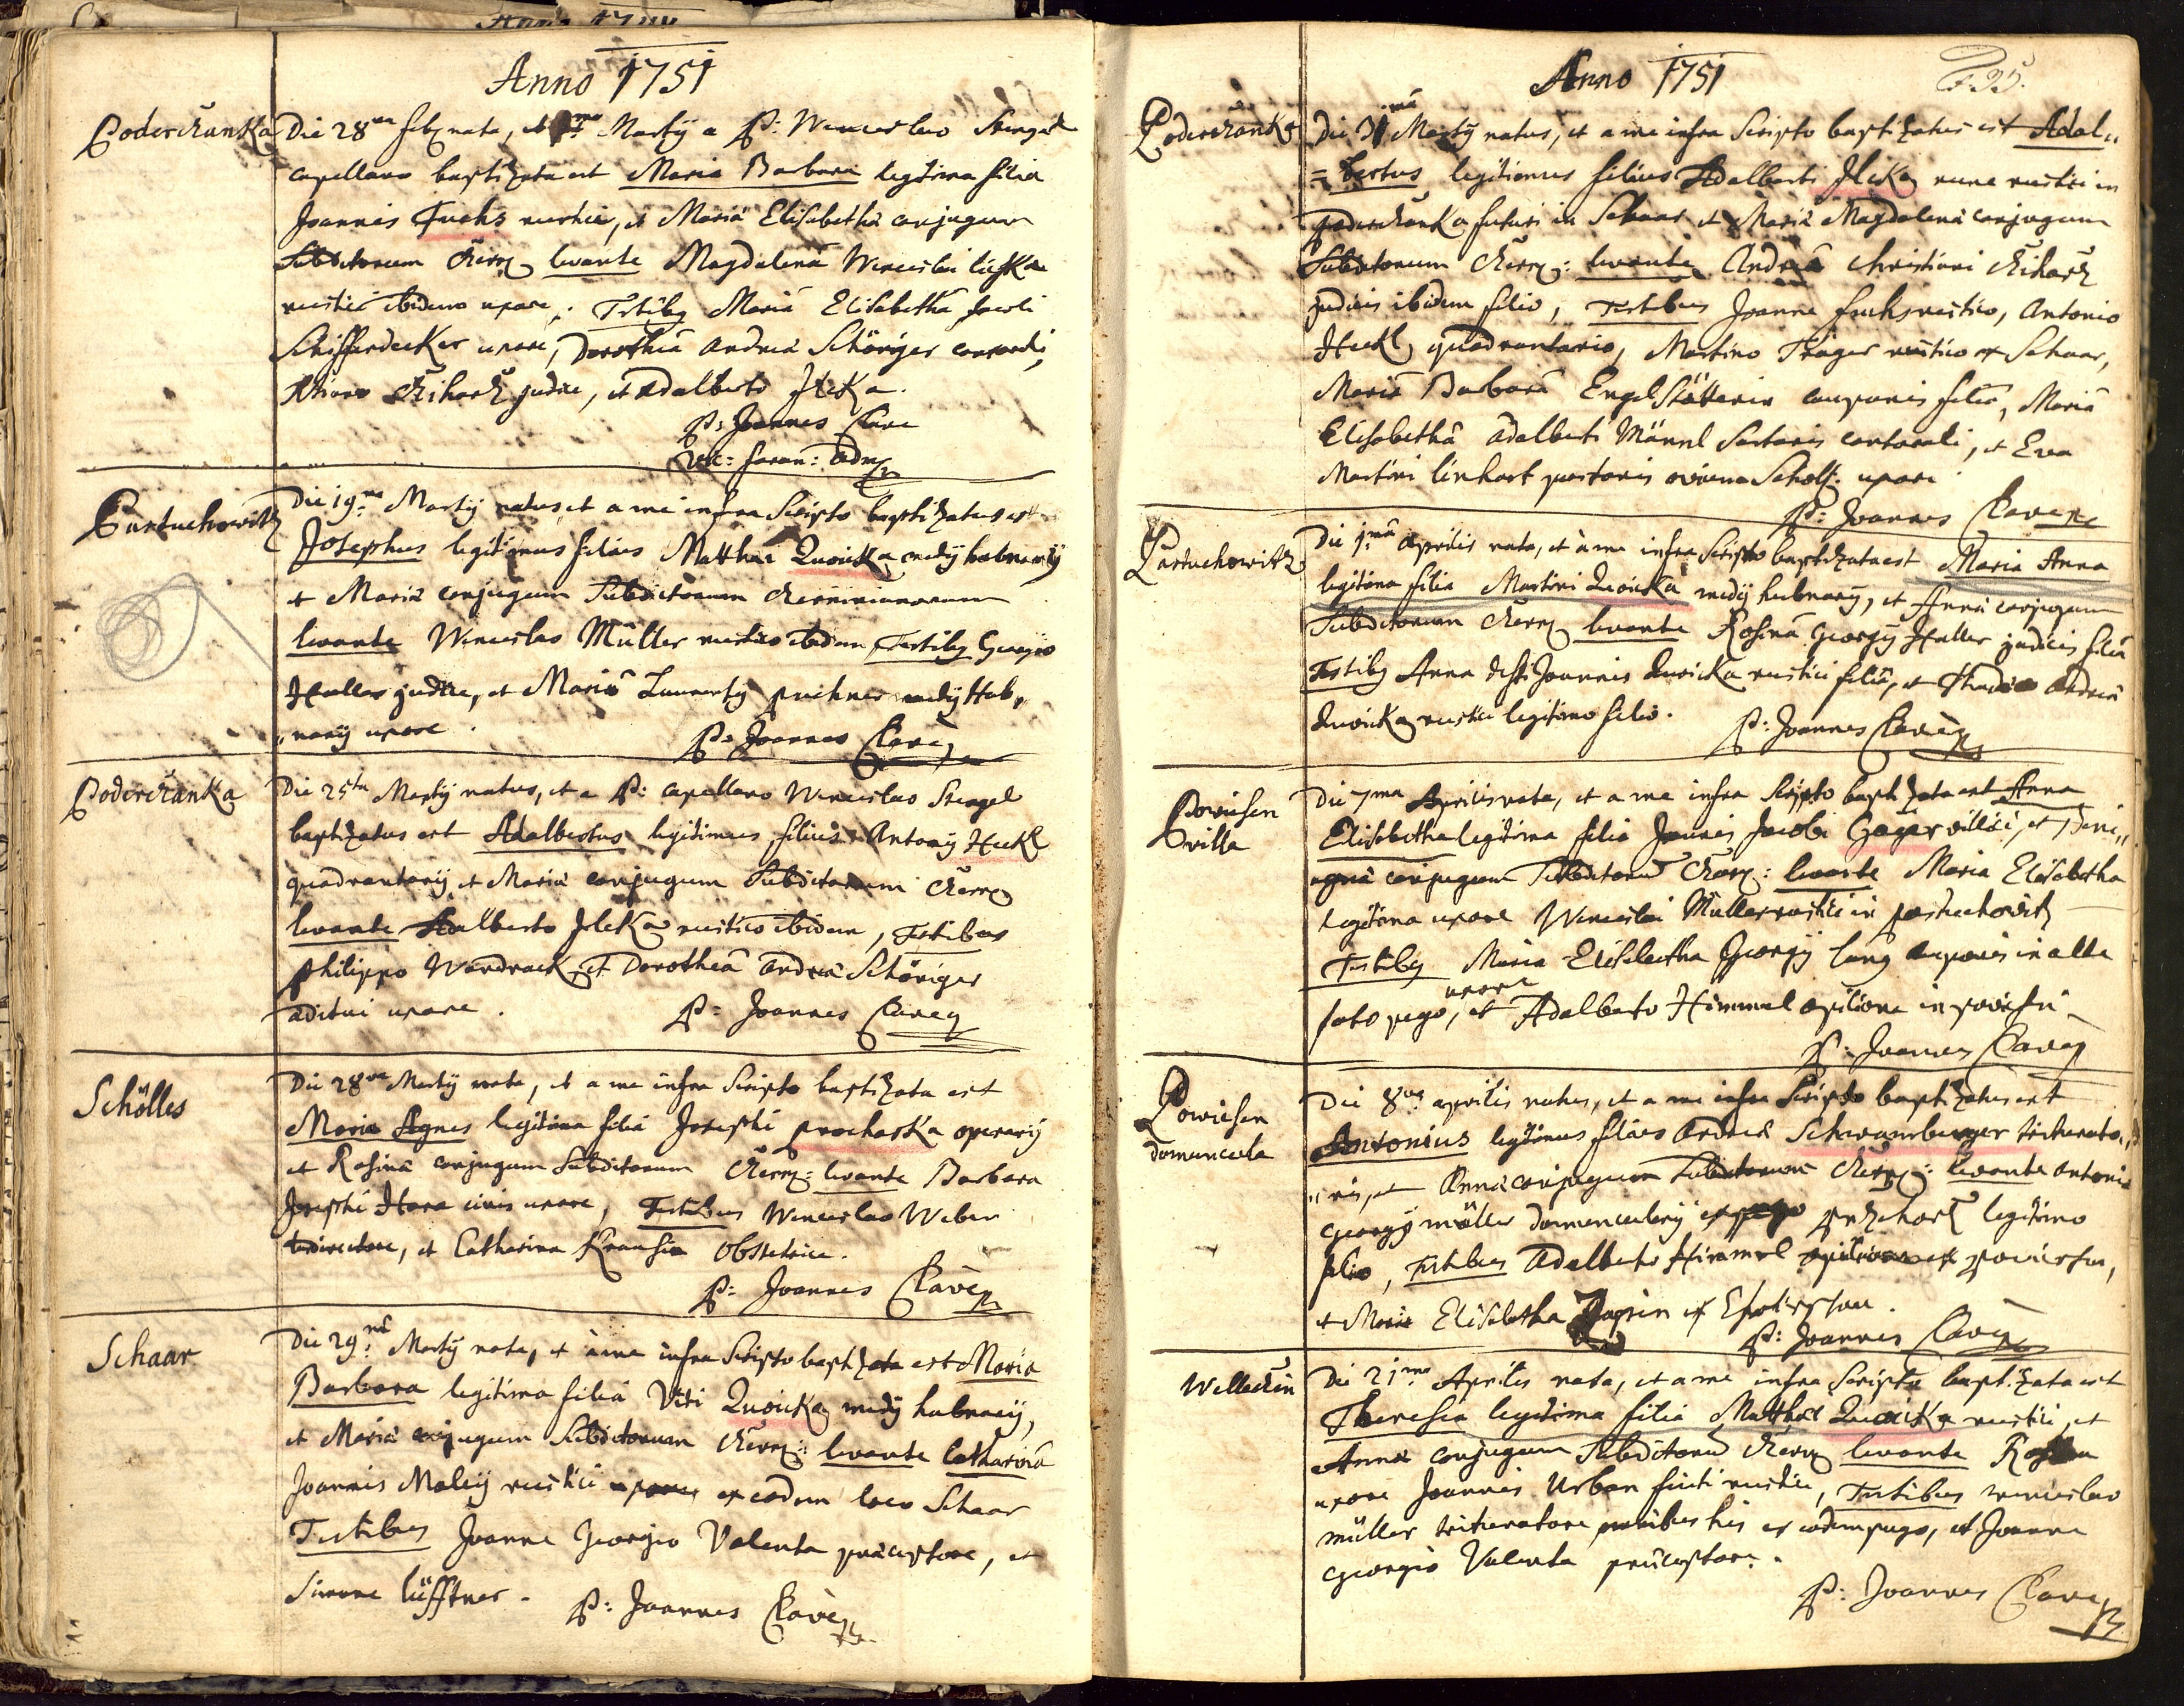 Anno 1751
Poderczanka
Die 28va feb nata, et 1ma Martij a P: Wenceslao Stengel
capellano baptizata est Maria Barbara legitima filia
Joannis Fuchs rustici, et Mariæ Elisabethæ conjugum
Subditorum Czern levante Magdalena Wenceslai
rustici ibidem uxore, Testibg Mariâ Elisabethâ Jacobi
Schifferdecker uxore, Dorotheâ Andreæ Schöniger
Cziharz judice, et Adalberto Ilcka.
P: Joannes Clave
Adm
Partuchowitz
Die 19na Martij natus, et a me infra Scripto baptizatus est
Josephus legitimus filius Matthæi Quoicka medij hubnarij
et Mariæ conjugum Subditorum Czerninianorum
levante Wenceslao Müller rustico ibidem, Testibg Georgio
Haller judice, et Mariâ Laurentij puchner medij Hub„
„narij uxore.
P: Joannes Clave
Poderczanka
Die 25ta Martij natus, et a P: capellano Wenceslao Stengel
baptizatus est Adalbertus legitimus filius Antonij Heckl
quadrantarij et Mariæ conjugum Subditorum Czern
levante Adalberto Ilcka rustico ibidem, Testibus
Philippo Wondrack, et Dorotheâ Andreæ Schöniger
æditui uxore.
P: Joannes Clave
Schölles
Die 28va Martij nata, et a me infra Scripto baptizata est
Maria Agnes legitima filia Josephi prochaska operarij
et Rosinæ conjugum Subditorum Czern: levante Barbara
Josephi Hora civis uxore, Testibus Wenceslao Weber
et Catharina Krausin obstetrice.
P: Joannes Clave
Schaar
Die 29na Martij nata, et à me infra Scripto baptizata est Maria
Barbara legitima filia Viti Quoicka medij hubnarij,
et Mariæ conjugum Subditorum Czern: levante Catharinâ
Joannis Maley rustici uxore ex eodem loco Schaar
Testibus Joanne Georgio Valenta præceptore, et
Simone lüfftner.
P: Joannes Clave
Anno 1751
35.
Poderczanka
Die 31ma Martij natus, et a me infra Scripto baptizatus est Adal„
=bertus legitimus filius Adalberti Ilcka nunc rustici in
poderczanka futuri in Schaar et Mariæ Magdalenæ conjugum
Subditorum Czern: levante Andreâ Christiani Cziharz
judicis ibidem filio, Testibus Joanne fuchs rustico, Antonio
Heckl quadrantario, Martino Träger rustico ex Schaar,
Mariâ Barbarâ Engelstätterin cauponis filiâ, Mariâ
Elisabethâ Adalberti Männl Sartoris, et Eva
Martini linhart pastoris Schöll. uxore.
P: Joannes Clave
Partuchowitz
Die 1mâ Aprilis nata, et à me infra Scripto baptizata est Maria Anna
legitima filia Martini Quoicka medij hubnarij, et Annæ conjugum
Subditorum Czern levante Rosinâ Georgij Haller judicis filiâ
Testibg Anna Joannis Quoicka rustici filiâ, et Andreæ
Quoicka rustici legitimo filio.
P: Joannes Clave
Powiesen
villa
Die 7ma Aprilis nata, et a me infra Scripto baptizata est Anna
Elisabetha legitima filia Jacobi Gager villici, et
conjugum Subditorum Czern: levante Maria Elisabetha
legitima uxore Wenceslai Müller rustici in partuchovitz
Testibg Maria Elisabetha Georgij lang cauponis in alto
sato pago, uxore et Adalberto Himmel opilione in
P: Joannes Clave
Powiesen
domuncula
Die 8va aprilis natus, et a me infra Scripto baptizatus est
Antonius legitimus filius Andreæ Schwamberger triturato„
„ris, et Annæ conjugum Subditorum Czern: levante Antonio
Georgij müller domuncularij legitimo
filio, Testibus Adalberto Himmel opilione ex
et Maria Elisabetha ex
P: Joannes Clave
Welleczin
Die 21ma Aprilis nata, et a me infra Scripto baptizata est
Theresia legitima filia Matthæi Quoicka rustici, et
Annæ conjugum Subditorum Czern levante
uxore Joannis Urban rustici, Testibus Wenceslao
müller trituratore, his ex eodem pago, et Joanne
Georgio Valenta præceptore.
P: Joannes Clave